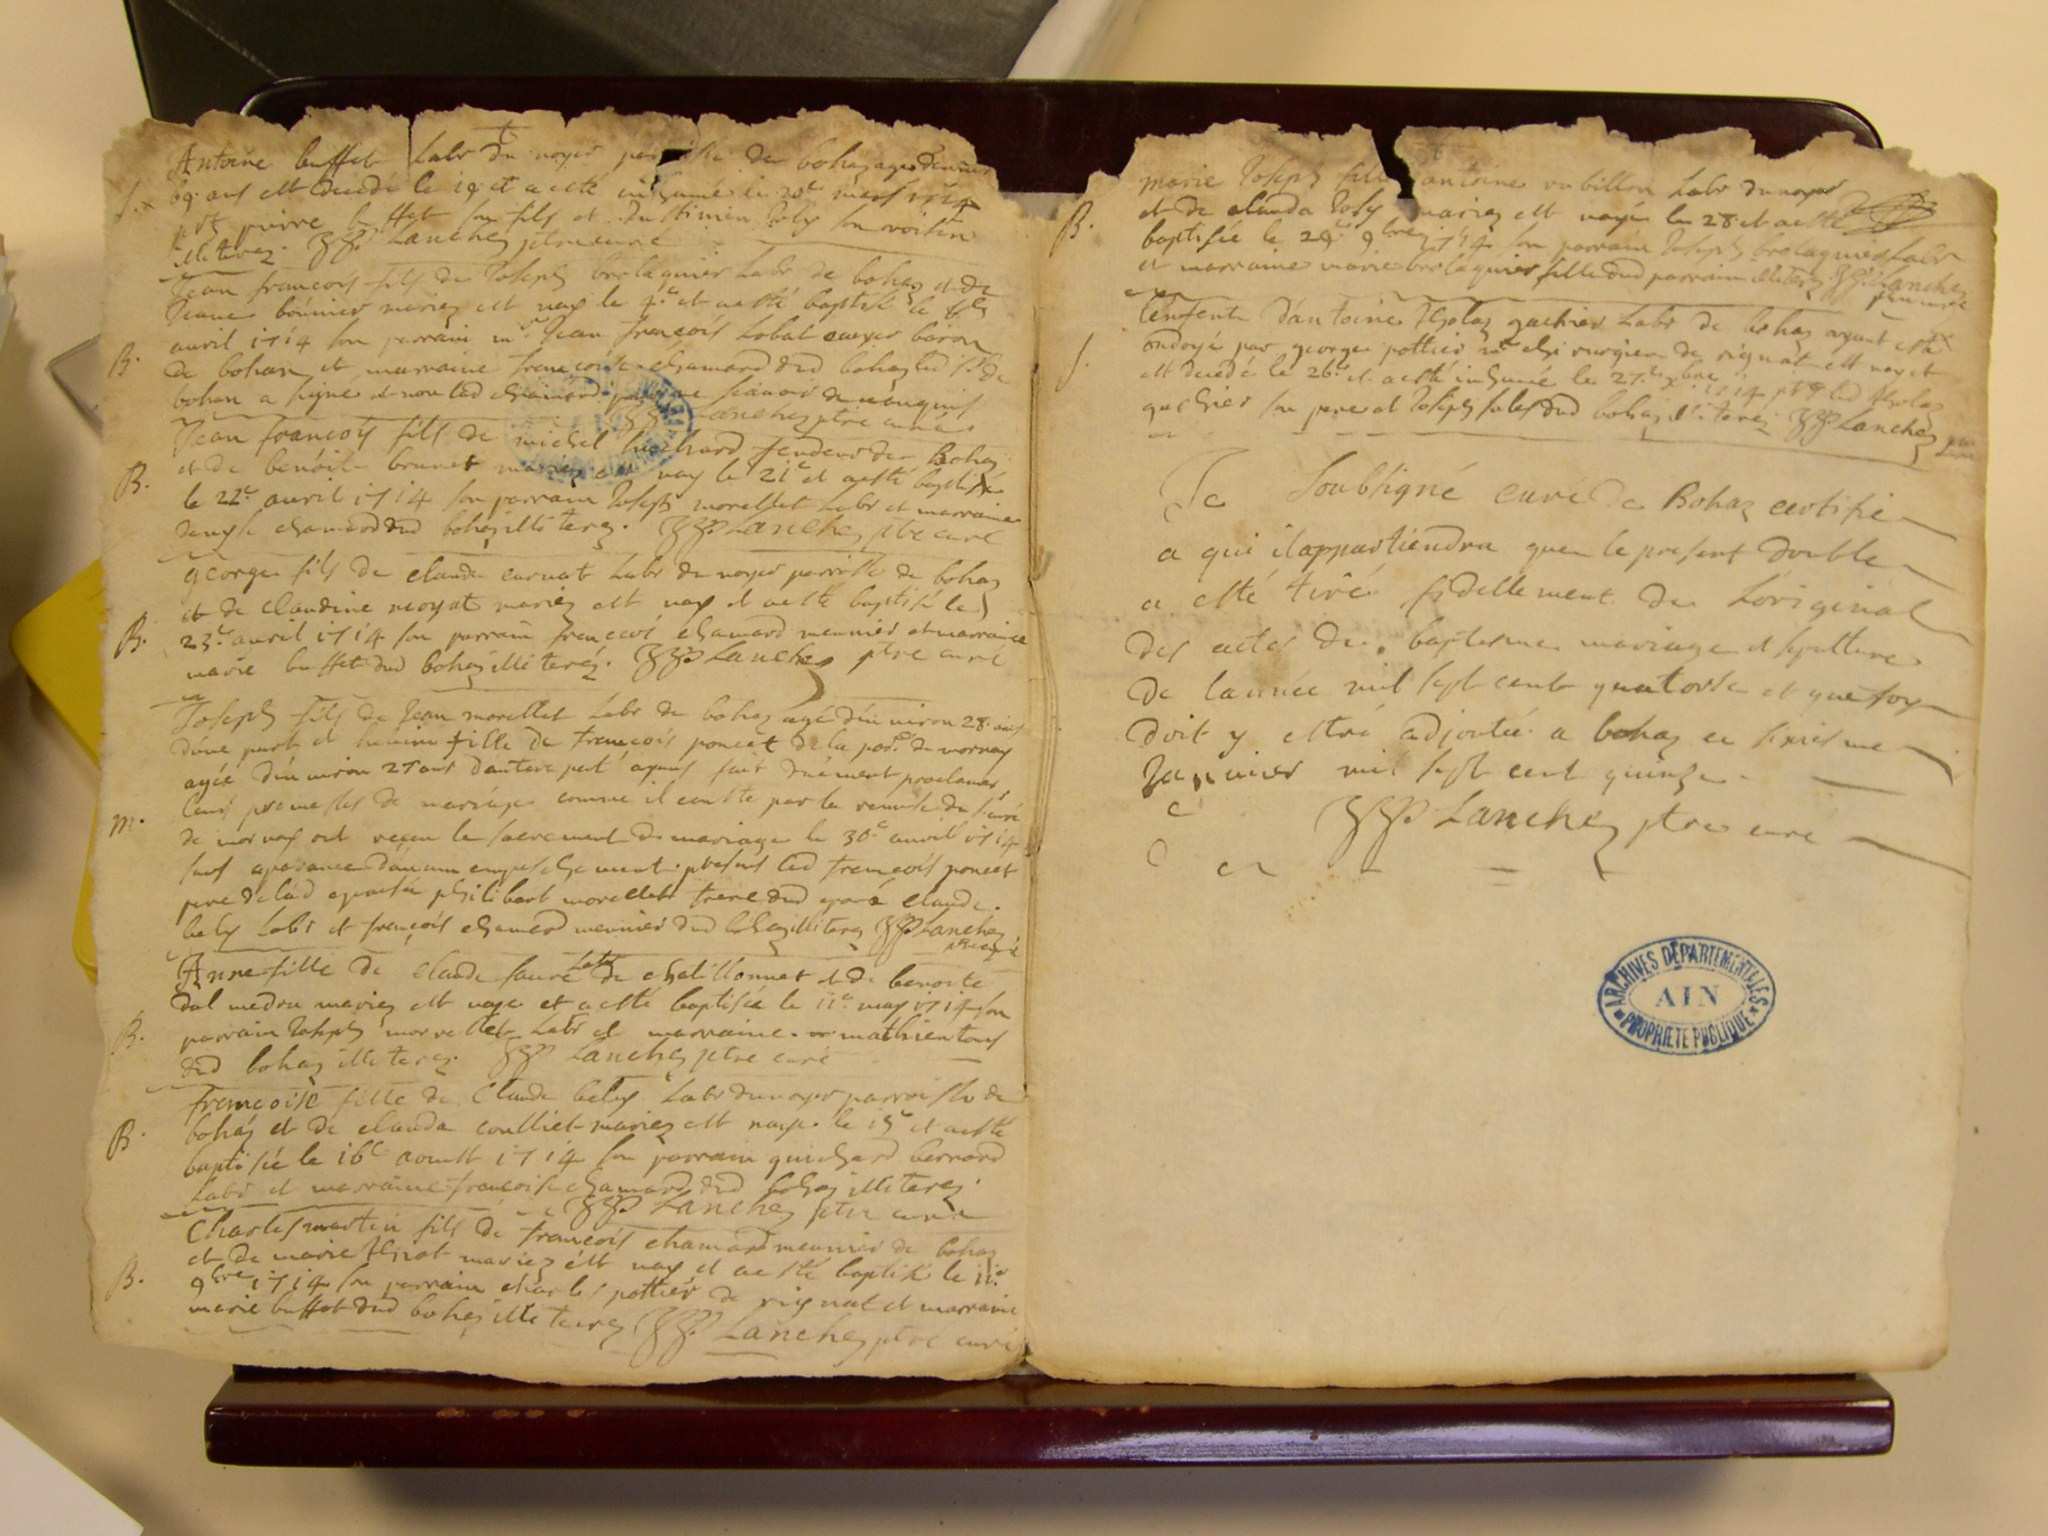 Antoine buffet Labr du noyer paroisse de bohaz agé denviron
S. 69 ans est decedé le 19 et a esté inhumé le 20e mars 1714
pnt pierre buffet son fils et Joly son voisin
illiterez. Lanchez ptre curé
Jean francois fils de Joseph brelaguier Labr de bohaz et de
Jeane bonnier mariez est nay le 4e et a esté baptisé le
B. avril 1714 son parrain mr Jean françois Lobal baron
de bohan et marraine françoise chamard dud bohaz led sr de
bohan a signé et non lad chamard
Lanchez ptre curé
Jean françois fils de michel de Bohaz
B. et de benoite brunet mariez est nay le 21e et a esté baptisé
le 22e avril 1714 son parrain Joseph morellet Labr et marraine
chamard dud bohaz illiterez. Lanchez ptre curé
george fils de claude curnat Labr du noyer parroisse de bohaz
et de claudine moyat mariez est nay et a esté baptisé le
B. 23e avril 1714 son parrain françois chamard meunier et marraine
marie buffet dud bohaz illiterez. Lanchez ptre curé
Joseph fils de Jean morellet Labr de bohaz agé denviron 28 ans
dune part et fille de françois poncet de la parr. de mornay
agée denviron 25 ans dautere part ayant fait duement proclamer
m. leurs promesses de mariage comme il conste par la remise du sr curé
de mornay ont reçeu le sacrement de mariage le 30e avril 1714
sans aparance daucun empeschement. present led françois poncet
pere de lad epouse philibert morellet frere dud epoux claude
bely Labr et françois chamard meunier dud bohaz illiterez Lanchez
ptre curé
Anne fille de claude faure Labr de chatillonnet et de benoite
dalmedra mariez est naye et a esté baptisée le 11e may 1714 son
B. parrain Joseph morellet Labr et marraine
dud bohaz illiterez. Lanchez ptre curé
françoise fille de Claude belly Labr du noyer parroisse de
B. bohaz et de clauda coulliet mariez est naye le 15e et a esté
baptisée le 16e aoust 1714 son parrain guichard bernard
Labr et marraine françoise chamard dud bohaz illiterez.
Lanchez ptre curé
Charles martin fils de françois chamard meunier de bohaz
et de marie mariez est nay et a esté baptisé le 11e
B. 9bre 1714 son parrain charles pottier de rignat et marraine
marie buffet dud bohaz illiterez Lanchez ptre curé
marie Joseph fille dantoine rubillon Labr du noyer
B. et de clauda Joly mariez est nayé le 28 et a esté
baptisée le 29e 9bre 1714 son parrain Joseph brelaguier Labr
et marraine marie brelaguier fille dud parrain illiterez Lanchez
ptre curé
lenfent dantoine gachier Labr de bohaz ayant esté
S. ondoyé par george pottier mr chirurgien de rignat est nay et
est decedé le 26e et a esté inhumé le 27e 1714 pnt led
gachier son pere et Joseph dud bohaz illiterez Lanchez ptre
curé
Je soubsigné curé de Bohaz certifie
a qui il appartiendra que le present double
a esté tiré fidellement de Loriginal
des actes de baptesme mariage et sepulture
de lannée mil sept cent quatorse et que foy
doit y estre adjoutée a bohaz ce
Janvier mil sept cent quinze
Lanchez ptre curé
ARCHIVES DÉPARTEMENTALES
AIN
PROPRIÉTÉ PUBLIQUE